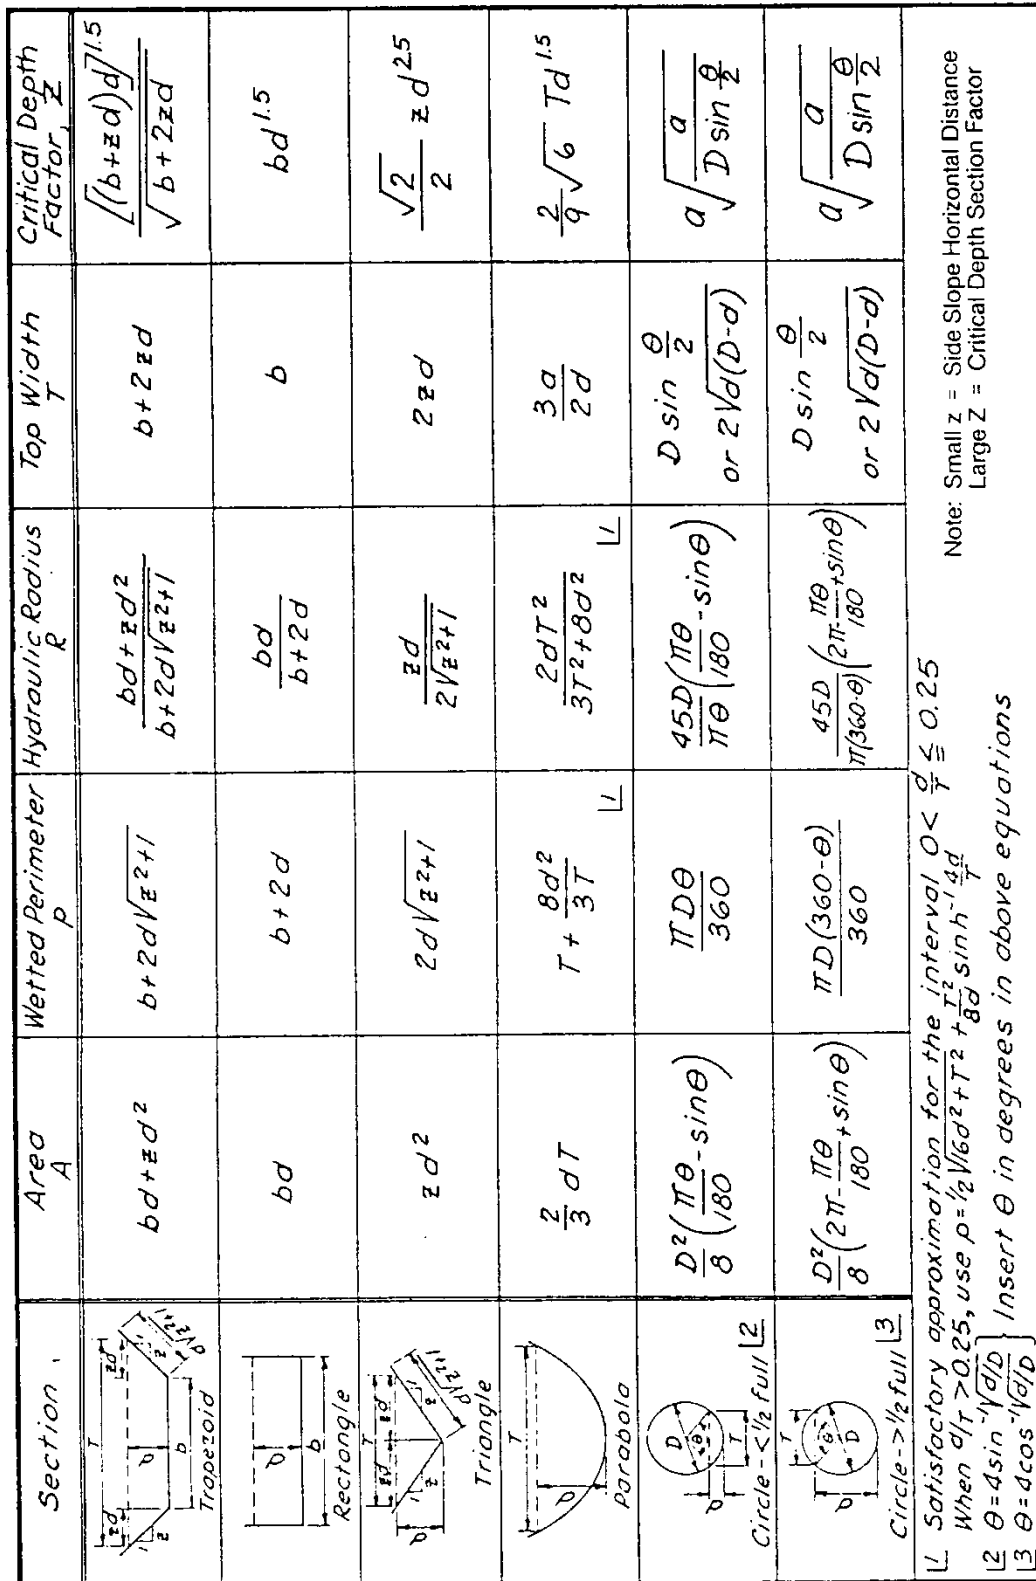 Section
Area
A
Wetted Perimeter
p
Hydraulic Radius
R
Top Width
T
Critical Depth
Factor, Z
T
zd
zd
1
z
d
b
1
z
d√z²+1
Trapezoid
bd+zd²
b+2d√z²+1
bd+zd² / b+2d√z²+1
b+2zd
[(b+zd)d]^1.5 / √b+2zd
d
b
Rectangle
bd
b+2d
bd / b+2d
b
bd^1.5
T
zd
zd
1
z
d
1
z
d√z²+1
Triangle
zd²
2d√z²+1
zd / 2√z²+1
2zd
√2/2 zd^2.5
T
d
Parabola
2/3 dT
T + 8d²/3T |1
2dT² / 3T²+8d² |1
3a/2d
2/9 √6 Td^1.5
D
θ
d
T
Circle-<1/2 full |2
D²/8 (πθ/180 - sinθ)
πDθ/360
45D/πθ (πθ/180 - sinθ)
D sin θ/2
or 2√d(D-d)
a√(a / D sin θ/2)
T
θ
D
d
Circle->1/2 full |3
D²/8 (2π - πθ/180 + sinθ)
πD(360-θ)/360
45D/π(360-θ) (2π - πθ/180 + sinθ)
D sin θ/2
or 2√d(D-d)
a√(a / D sin θ/2)
|1 Satisfactory approximation for the interval 0< d/T ≦ 0.25
When d/T >0.25, use p=1/2√16d²+T² + T²/8d sinh⁻¹ 4d/T
|2 θ=4sin⁻¹√d/D
|3 θ=4cos⁻¹√d/D
} Insert θ in degrees in above equations
Note: Small z = Side Slope Horizontal Distance
Large Z = Critical Depth Section Factor